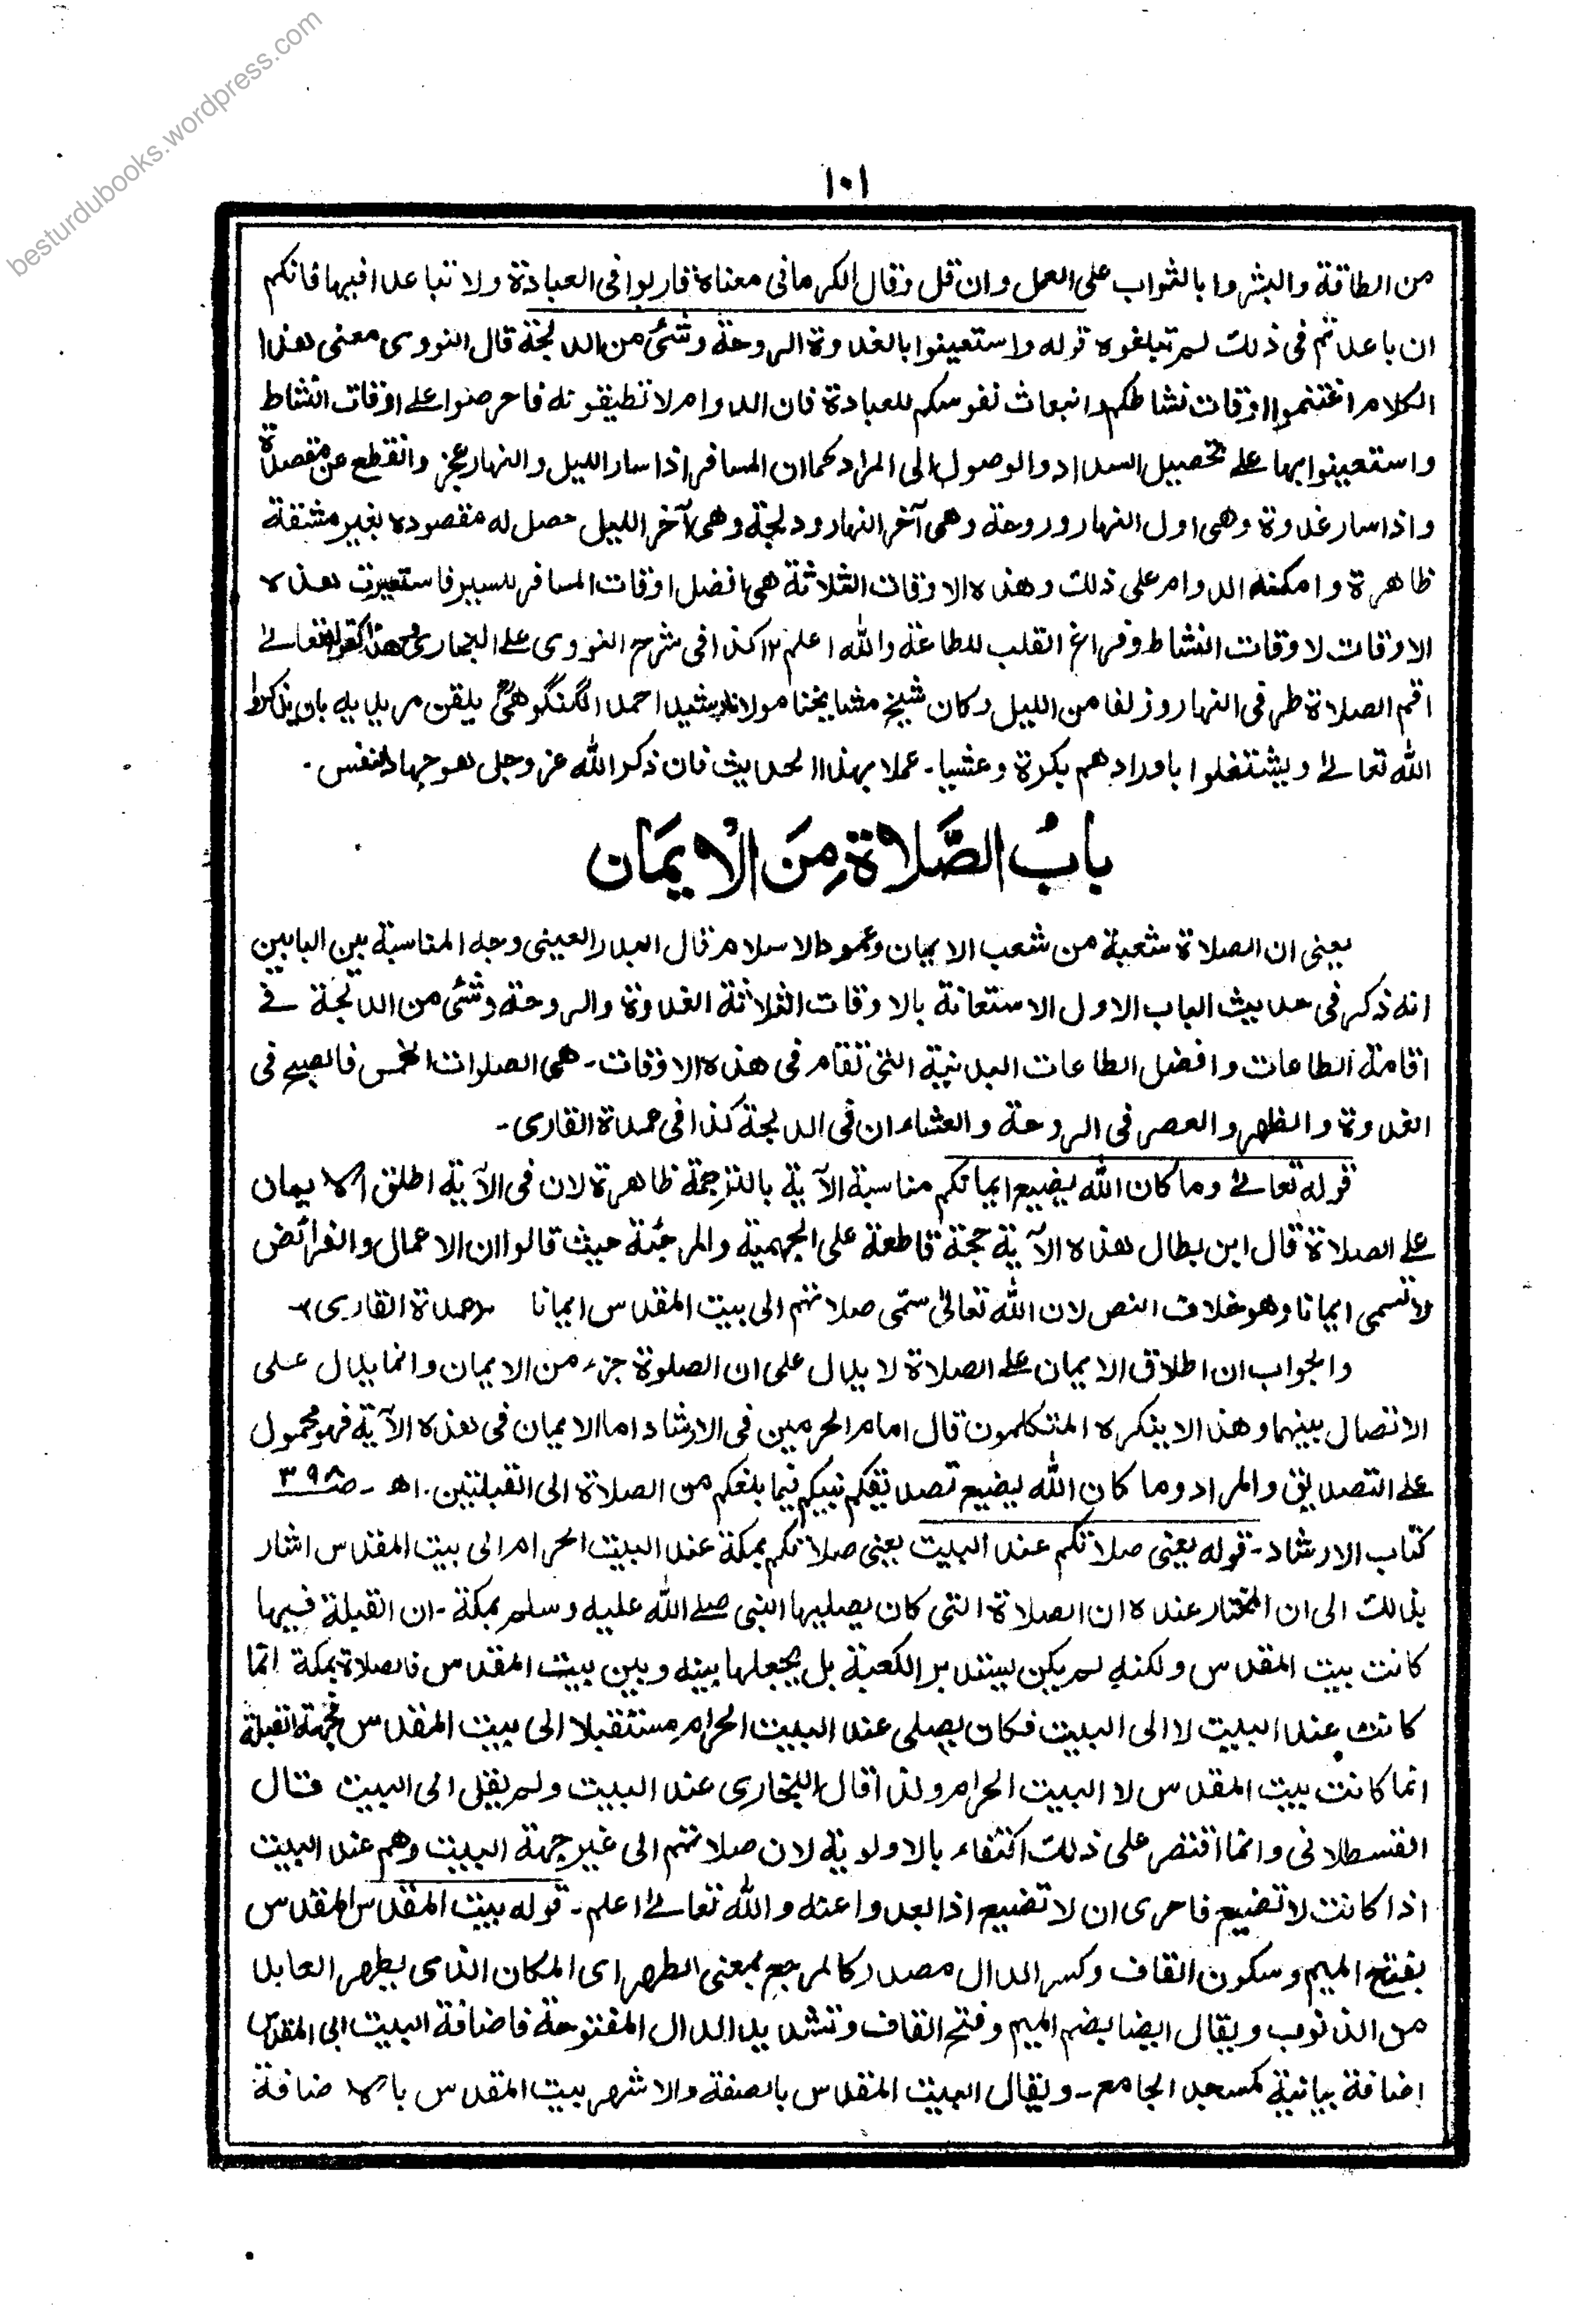 besturdubooks.wordpress.com
١٠١
من الطاقة والبشروا بالثواب على العمل وان قل وقال الكرمانى معناه قاربوا فى العبادة ولا تباعدا فيها فانكم
ان باعدتم فى ذلك لم تبلغوه قوله واستعينوا بالغدوة الروحة وشئ من الدلجة قال النووى معنى هذا
الكلام اغتنموا اوقات نشاطكم وانبعاث نفوسكم للعبادة فان الدوام لا تطيقونه فاحرصوا على اوقات النشاط
واستعينوا بها على تحصيل السداد والوصول الى المراد كما ان المسافر اذا سار الليل والنهار عجز وانقطع عن مقصده
واذا سار غدوة وهى اول النهار وروحة وهى آخر النهار ودلجة وهى آخر الليل حصل له مقصوده بغير مشقة
ظاهرة وامكنه الدوام على ذلك وهذه الاوقات الثلاثة هى افضل اوقات المسافر للسير فاستعيرت هذه
الاوقات لاوقات النشاط وفراغ القلب للطاعة والله اعلم ١٢ كذا فى شرح النووى على البخارى وهذا كقوله تعالى
اقم الصلاة طرفى النهار وزلفا من الليل وكان شيخ مشايخنا مولانا رشيد احمد الگنگوهىؒ يلقن مريديه بان يذكروا
الله تعالى ويشتغلوا باورادهم بكرة وعشيا - عملا بهذا الحديث فان ذكر الله عز وجل هو جهاد النفس -
بابُ الصَّلاة مِنَ الْايمَان
يعنى ان الصلاة شعبة من شعب الايمان وعمود الاسلام قال البدر العينى وجه المناسبة بين البابين
انه ذكر فى حديث الباب الاول الاستعانة بالاوقات الثلاثة الغدوة والروحة وشئ من الدلجة فى
اقامة الطاعات وافضل الطاعات البدنية التى تقام فى هذه الاوقات - هى الصلوات الخمس فالصبح فى
الغدوة والظهر والعصر فى الروحة والعشاءان فى الدلجة كذا فى عمدة القارى -
قوله تعالى وما كان الله ليضيع ايمانكم مناسبة الآية بالترجمة ظاهرة لان فى الآية اطلق الايمان
على الصلاة قال ابن بطال هذه الآية حجة قاطعة على الجهمية والمرجئة حيث قالوا ان الاعمال والفرائض
لا تسمى ايمانا وهو خلاف النص لان الله تعالى سمّى صلاتهم الى بيت المقدس ايمانا عمدة القارى
والجواب ان اطلاق الايمان على الصلاة لا يدل على ان الصلوة جزء من الايمان وانما يدل على
الاتصال بينهما وهذا لا ينكره المتكلمون قال امام الحرمين فى الارشاد اما الايمان فى هذه الآية فهو محمول
على التصديق والمراد وما كان الله ليضيع تصديقكم نبيكم فيما بلغكم من الصلاة الى القبلتين . اهـ - صـ ٣٩٨
كتاب الارشاد - قوله يعنى صلاتكم عند البيت يعنى صلاتكم بمكة عند البيت الحرام الى بيت المقدس اشار
بذلك الى ان المختار عنده ان الصلاة التى كان يصليها النبى صلى الله عليه وسلم بمكة - ان القبلة فيها
كانت بيت المقدس ولكنه لم يكن يستدبر الكعبة بل يجعلها بينه وبين بيت المقدس فالصلاة بمكة انما
كانت عند البيت لا الى البيت فكان يصلى عند البيت الحرام مستقبلا الى بيت المقدس فجهة القبلة
انما كانت بيت المقدس لا البيت الحرام ولذا قال البخارى عند البيت ولم يقل الى البيت قال
القسطلانى وانما اقتصر على ذلك اكتفاء بالاولوية لان صلاتهم الى غير جهة البيت وهم عند البيت
اذا كانت لا تضيع فاحرى ان لا تضيع اذا بعدوا عنه والله تعالى اعلم - قوله بيت المقدس المقدس
بفتح الميم وسكون القاف وكسر الدال مصدر كالمرجع بمعنى الطهر اى المكان الذى يطهر العابد
من الذنوب ويقال ايضا بضم الميم وفتح القاف وتشديد الدال المفتوحة فاضافة البيت الى المقدس
اضافة بيانية كمسجد الجامع - ويقال البيت المقدس بالصفة والاشهر بيت المقدس بالاضافة